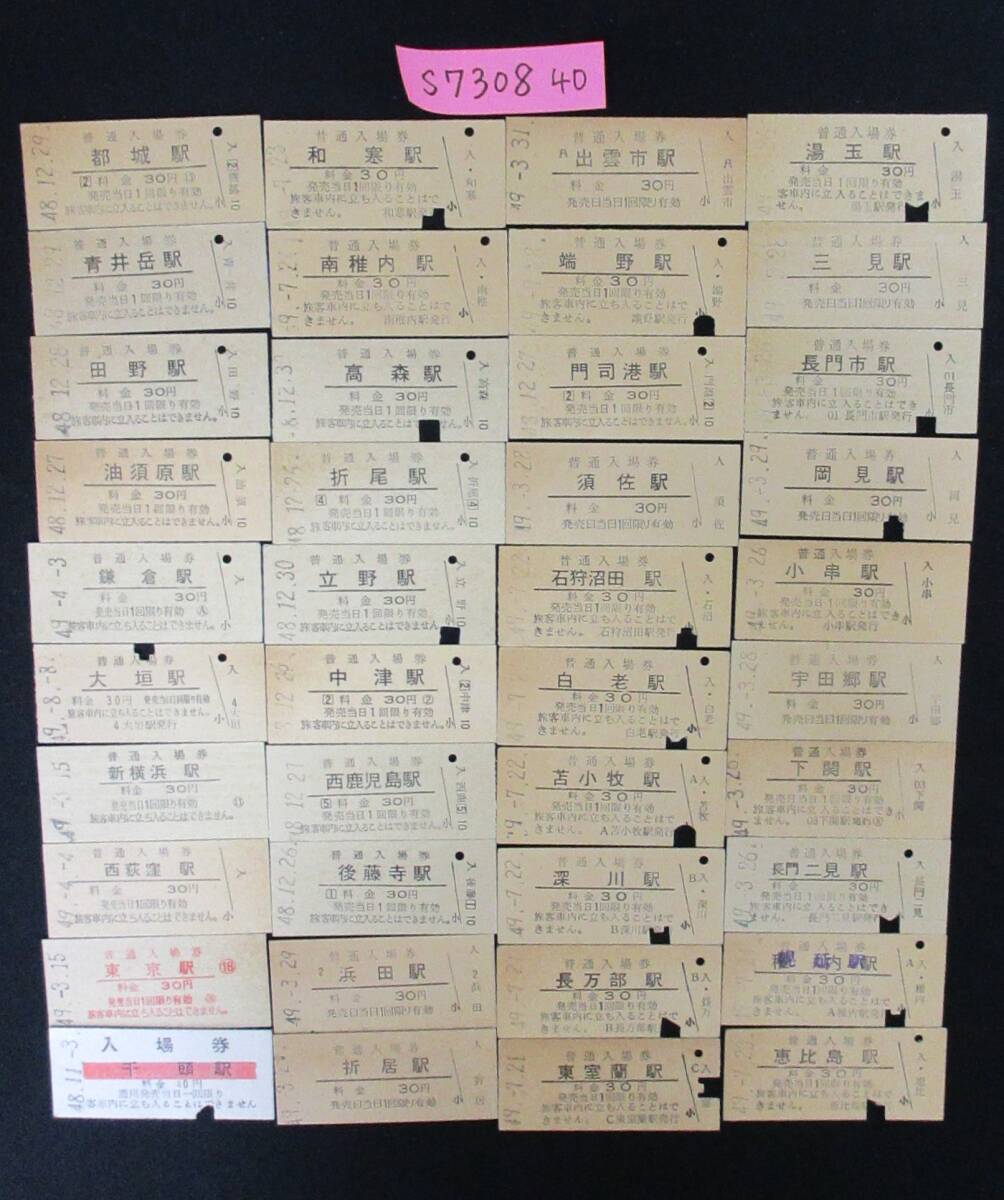 S7308 40
48.12.29
普通入場券
都城駅
[2]料金 30円 ⑪
発売当日1回限り有効
旅客車内に立ち入ることはできません。小
入 [2]都城 10
普通入場券
和寒駅
料金 30円
発売当日1回限り有効
旅客車内に立ち入ることはで
きません。 和寒駅発行
入・和寒 小
49.-3.31
出雲市駅
料金 30円
発売日当日1回限り有効
入 出雲市 小
普通入場券
湯玉駅
料金 30円
発売当日1回限り有効
旅客車内に立ち入ることはで
きません。 湯玉駅発行
入 湯玉 小
普通入場券
青井岳駅
料金 30円
発売当日1回限り有効
旅客車内に立入ることはできません。小
普通入場券
南稚内駅
料金 30円
発売当日1回限り有効
旅客車内に立ち入ることはで
きません。 南稚内駅発行
入・南稚 小
普通入場券
端野駅
料金 30円
発売当日1回限り有効
旅客車内に立ち入ることはで
きません。 端野駅発行
入・端野 小
普通入場券
三見駅
料金 30円
発売日当日1回限り有効
入 三見 小
48.12.28
普通入場券
田野駅
料金 30円
発売当日1回限り有効
旅客車内に立入ることはできません。小
入 田野 10
普通入場券
高森駅
料金 30円
発売当日1回限り有効
旅客車内に立入ることはできません。小
入 高森 10
48.12.27
普通入場券
門司港駅
[2]料金 30円
発売当日1回限り有効
旅客車内に立入ることはできません。小
普通入場券
長門市駅
料金 30円
発売当日1回限り有効
旅客車内に立入ることはでき
ません。 01長門市駅発行
入 01長門市 小
48.12.27
普通入場券
油須原駅
料金 30円
発売当日1回限り有効
旅客車内に立入ることはできません。小
普通入場券
折尾駅
[4]料金 30円
発売当日1回限り有効
旅客車内に立入ることはできません。小
入 折尾[4] 10
49.-3.28
普通入場券
須佐駅
料金 30円
発売日当日1回限り有効
入 須佐 小
49.-3.29
普通入場券
岡見駅
料金 30円
発売日当日1回限り有効
入 岡見 小
49.-4.-3
普通入場券
鎌倉駅
料金 30円
発売当日1回限り有効
旅客車内に立ち入ることはできません。小
入
48.12.30
普通入場券
立野駅
料金 30円
発売当日1回限り有効
旅客車内に立入ることはできません。
入 立野 10
普通入場券
石狩沼田駅
料金 30円
発売当日1回限り有効
旅客車内に立ち入ることはで
きません。 石狩沼田駅発行
入・石沼
49.-3.26
普通入場券
小串駅
料金 30円
発売当日1回限り有効
旅客車内に立ち入ることはで
きません。 小串駅発行
入 小串 小
49.-8.-8
普通入場券
大垣駅
料金 30円 発売当日1回限り有効
旅客車内に立ち入ることはできません。
4大垣駅発行
入 4大垣 小
普通入場券
中津駅
[2]料金 30円 ②
発売当日1回限り有効
旅客車内に立入ることはできません。小
入 [2]中津 10
普通入場券
白老駅
料金 30円
発売当日1回限り有効
旅客車内に立ち入ることはで
きません。 白老駅発行
入・白老 小
49.-3.28
普通入場券
宇田郷駅
料金 30円
発売日当日1回限り有効
入 宇田郷 小
普通入場券
新横浜駅
料金 30円
発売当日1回限り有効 ⑪
旅客車内に立ち入ることはできません。小
普通入場券
西鹿児島駅
[5]料金 30円
発売当日1回限り有効
旅客車内に立入ることはできません。小
普通入場券
苫小牧駅
料金 30円
発売当日1回限り有効
旅客車内に立ち入ることはで
きません。 A苫小牧駅発行
A入・苫牧
普通入場券
下関駅
料金 30円
発売日当日1回限り有効
旅客車内に立ち入ることはで
きません。 03下関駅発行
入 03下関 小
49.-4.-4
普通入場券
西荻窪駅
料金 30円
発売当日1回限り有効
旅客車内に立ち入ることはできません。小
入
48.12.26
普通入場券
後藤寺駅
[1]料金 30円
発売当日1回限り有効
旅客車内に立入ることはできません。小
49.-7.22
普通入場券
深川駅
料金 30円
発売当日1回限り有効
旅客車内に立ち入ることはで
きません。 B深川駅発行
B入・深川 小
普通入場券
長門二見駅
料金 30円
発売当日1回限り有効
旅客車内に立ち入ることはで
きません。 長門二見駅発行
入 長門二見 小
49.-3.15
普通入場券
東京駅 ⑱
料金 30円
発売当日1回限り有効
旅客車内に立ち入ることはできません。
49.-3.29
普通入場券
浜田駅
料金 30円
発売日当日1回限り有効
入 2浜田 小
普通入場券
長万部駅
料金 30円
発売当日1回限り有効
旅客車内に立ち入ることはで
きません。 B長万部駅発行
B入・長万 小
普通入場券
料金 30円
発売当日1回限り有効
旅客車内に立ち入ることはで
きません。 A稚内駅発行
A入・稚内
48.11.-3
入場券
千頭駅
通用発売当日一回限り
客車内に立ち入ることはできません
普通入場券
折居駅
料金 30円
発売日当日1回限り有効
入 折居 小
49.-7.21
普通入場券
東室蘭駅
料金 30円
発売当日1回限り有効
旅客車内に立ち入ることはで
きません。 C東室蘭駅発行
C入 小
普通入場券
恵比島駅
料金 30円
発売当日1回限り有効
旅客車内に立ち入ることはで
きません。 恵比島駅発行
入・恵比 小